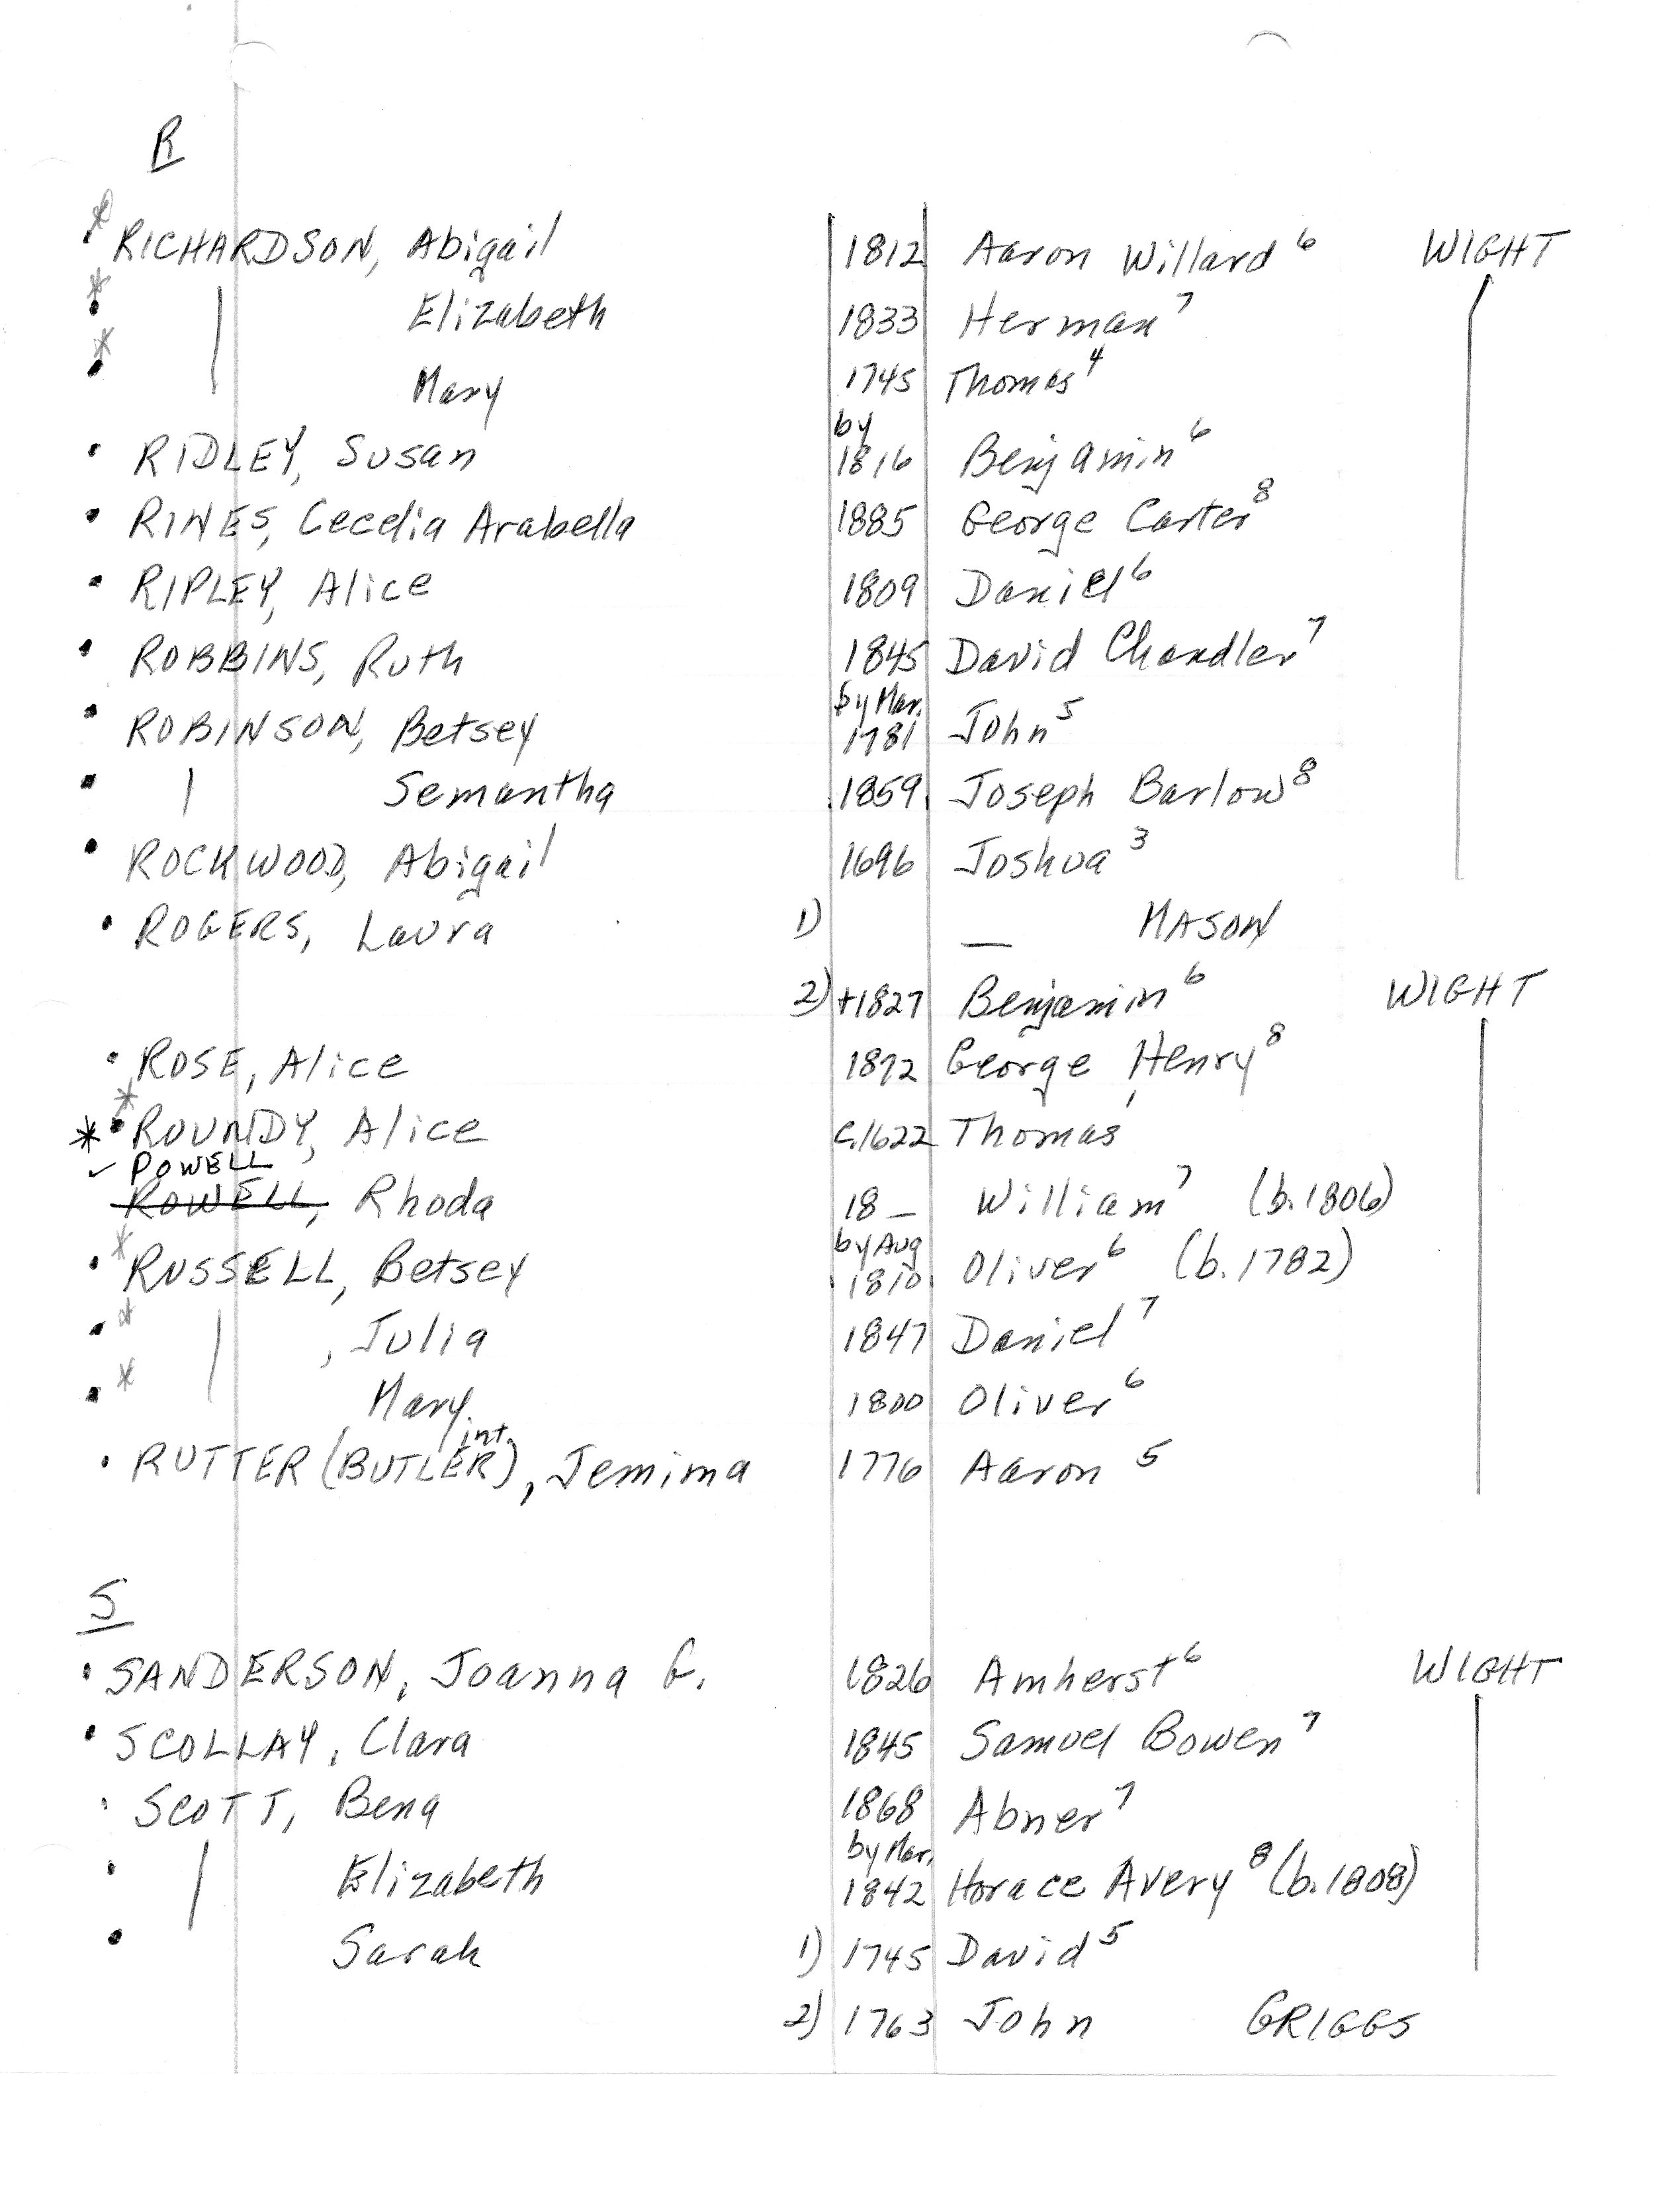 R
* • RICHARDSON, Abigail 1812 Aaron Willard⁶ WIGHT
* • Elizabeth 1833 Herman⁷
* • Mary 1745 Thomas⁴
• RIDLEY, Susan by 1816 Benjamin⁶
• RINES, Cecelia Arabella 1885 George Carter⁸
• RIPLEY, Alice 1809 Daniel⁶
• ROBBINS, Ruth 1845 David Chandler⁷
• ROBINSON, Betsey by Mar. 1781 John⁵
• Semantha 1859 Joseph Barlow⁸
• ROCKWOOD, Abigail 1696 Joshua³
• ROGERS, Laura 1) — MASON
2) +1827 Benjamin⁶ WIGHT
• ROSE, Alice 1872 George Henry⁸
* * • ROUNDY, Alice c.1622 Thomas¹
✓ POWELL
ROWELL, Rhoda 18— William⁷ (b.1806)
• * RUSSELL, Betsey by Aug 1810 Oliver⁶ (b.1782)
• * , Julia 1847 Daniel⁷
• * Mary 1800 Oliver⁶
• RUTTER (BUTLER int.), Jemima 1776 Aaron⁵
S
• SANDERSON, Joanna G. 1826 Amherst⁶ WIGHT
• SCOLLAY, Clara 1845 Samuel Bowen⁷
• SCOTT, Bena 1868 Abner⁷
• Elizabeth by Mar. 1842 Horace Avery⁸ (b.1808)
• Sarah 1) 1745 David⁵
2) 1763 John GRIGGS